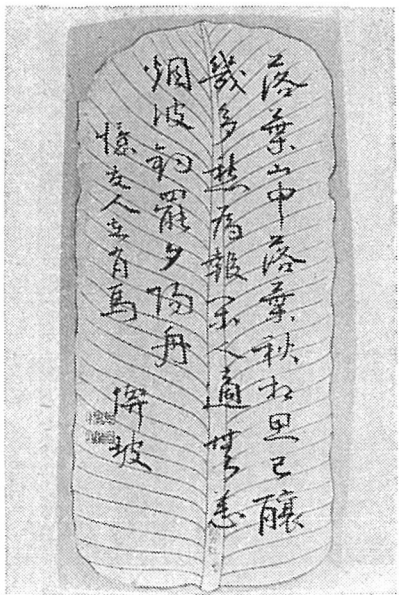 落葉山中落葉秋相思已釀
幾多愁為報人適無恙
烟波釣罷夕陽舟
憶友人在有馬
坡